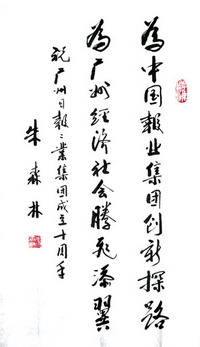 為中国報业集团创新探路
為广州經济社会腾飞添翼
祝广州日報報業集团成立十周年
朱森林